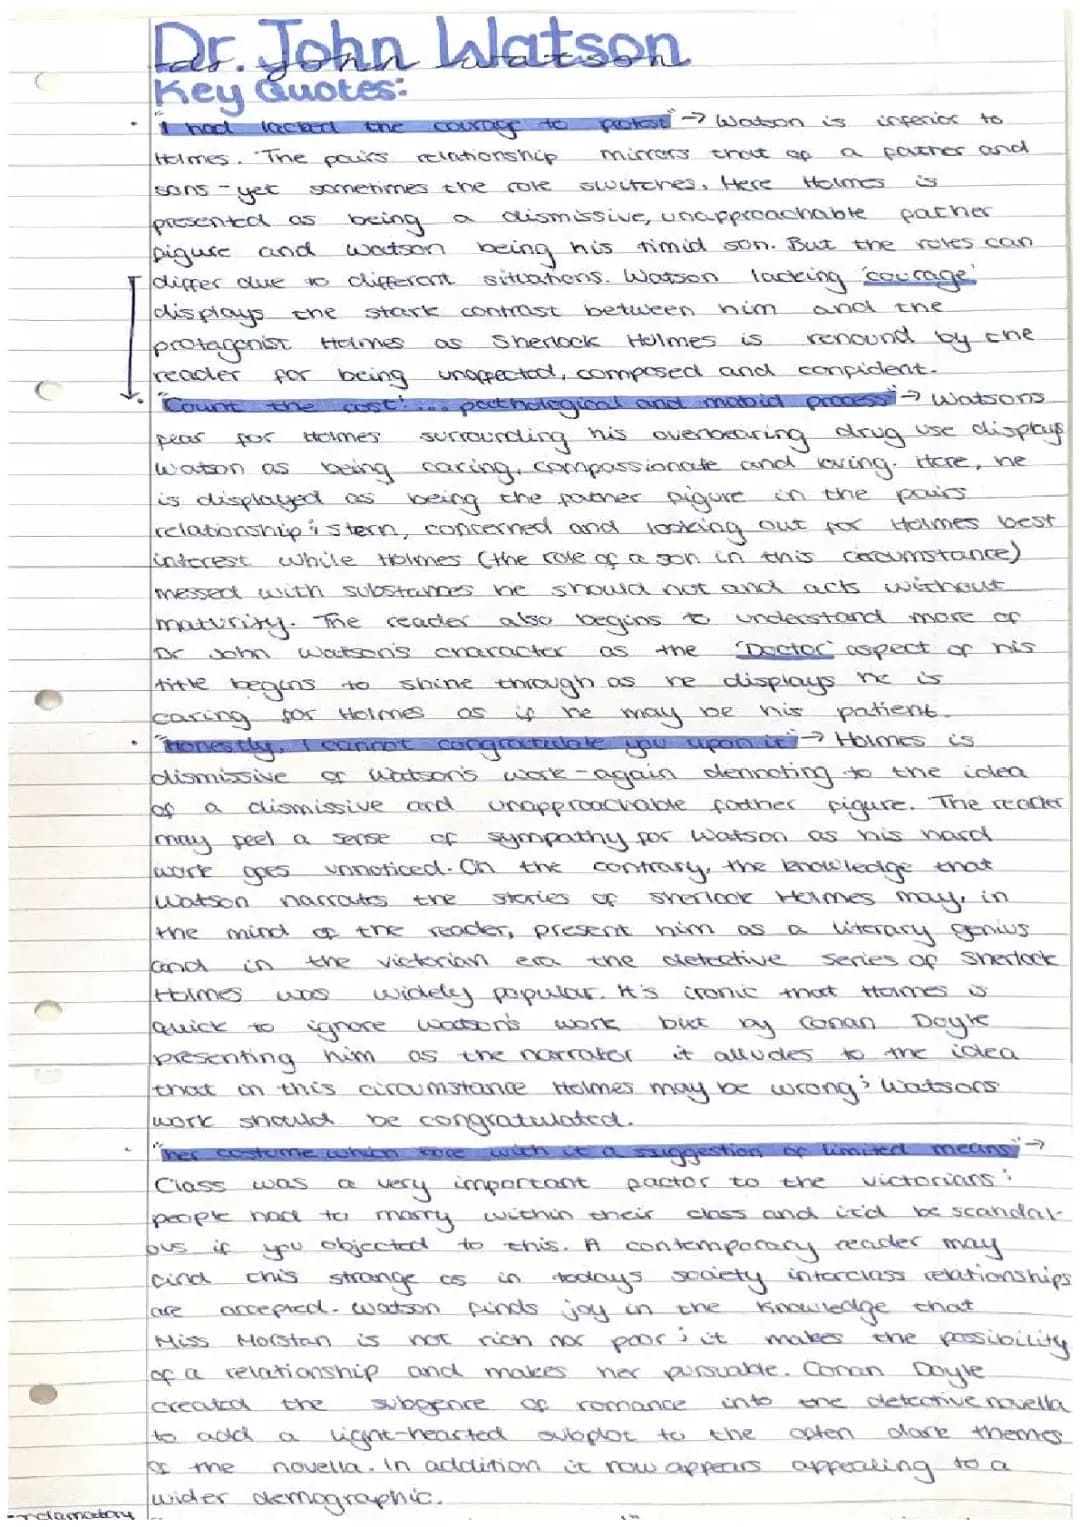 Dr. John Watson
Dr. John Watson
Key Quotes:
"I had lacked the courage to protest" → Watson is inferior to
Holmes. The pairs relationship mirrors that of a father and
sons - yet sometimes the role switches. Here Holmes is
presented as being a dismissive, unapproachable father
figure and Watson being his timid son. But the roles can
differ due to different situations. Watson lacking 'courage'
displays the stark contrast between him and the
protagonist Holmes as Sherlock Holmes is renound by the
reader for being unaffected, composed and confident.
"Count the cost! ... pathological and mobid process" → Watsons
fear for Holmes surrounding his overbearing drug use displays
Watson as being caring, compassionate and loving. Here, he
is displayed as being the father figure in the pairs
relationship; stern, concerned and looking out for Holmes best
interest while Holmes (the role of a son in this circumstance)
messed with substances he should not and acts without
maturity. The reader also begins to understand more of
Dr John Watson's character as the 'Doctor' aspect of his
title begins to shine through as he displays he is
caring for Holmes as if he may be his patient.
"Honestly, I cannot congratulate you upon it" → Holmes is
dismissive of Watson's work - again dennoting to the idea
of a dismissive and unapproachable father figure. The reader
may feel a sense of sympathy for Watson as his hard
work goes unnoticed. On the contrary, the knowledge that
Watson narrates the stories of Sherlock Holmes may, in
the mind of the reader, present him as a literary genius
and in the victorian era the detective series of Sherlock
Holmes was widely popular. It's ironic that Holmes is
quick to ignore Watson's work but by Conan Doyle
presenting him as the narrator it alludes to the idea
that in this circumstance Holmes may be wrong; Watsons
work should be congratulated.
"her costume which bore with it a suggestion of limited means" →
Class was a very important factor to the victorians:
people had to marry within their class and it'd be scandal-
ous if you objected to this. A contemporary reader may
find this strange as in todays society interclass relationships
are accepted. Watson finds joy in the knowledge that
Miss Morstan is not rich nor poor; it makes the possibility
of a relationship and makes her pursuable. Conan Doyle
created the subgenre of romance into the detective novella
to add a light-hearted subplot to the often dark themes
of the novella. In addition it now appears appealing to a
wider demographic.